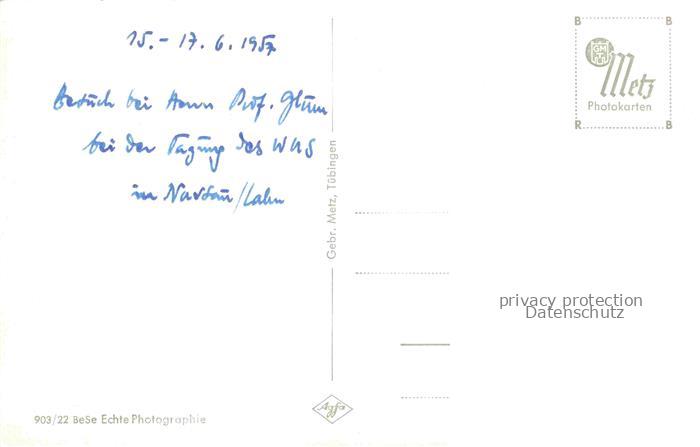 15. - 17. 6. 1957
Besuch bei Herrn Prof. Glum
bei der Tagung des
in Nassau/Lahn
Gebr. Metz, Tübingen
B B
GM
Metz
Photokarten
R B
privacy protection
Datenschutz
903/22 BeSe Echte Photographie
Agfa